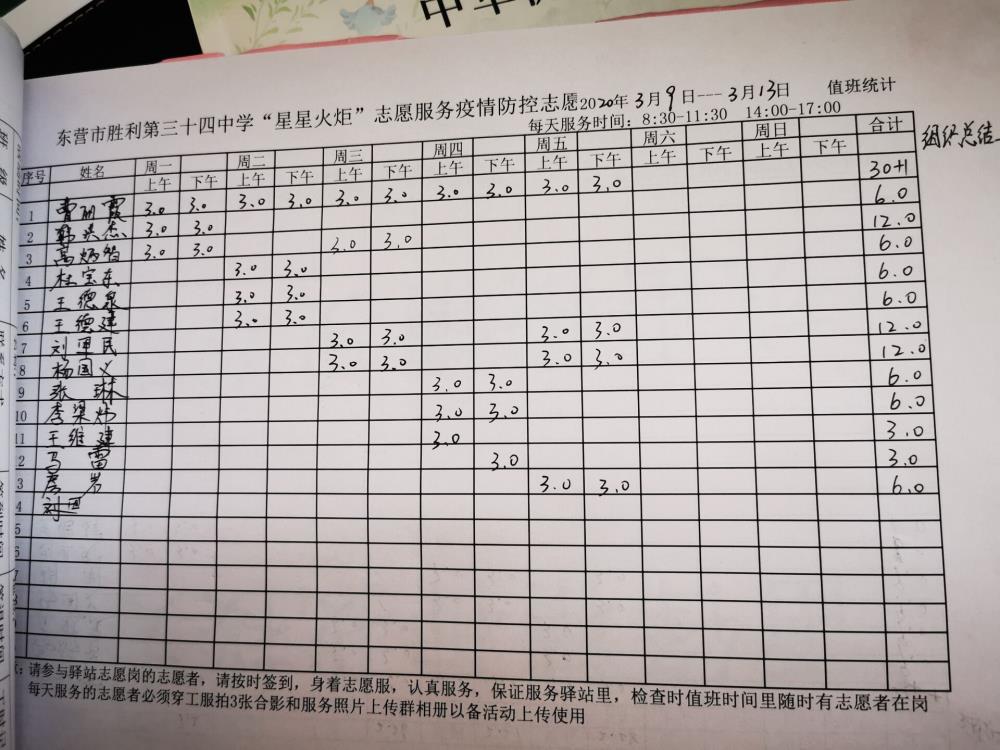 东营市胜利第三十四中学“星星火炬”志愿服务疫情防控志愿2020年3月9日---3月13日 值班统计
每天服务时间：8:30-11:30 14:00-17:00
组织总结
序号 姓名 周一 周二 周三 周四 周五 周六 周日 合计
上午 下午 上午 下午 上午 下午 上午 下午 上午 下午 上午 下午 上午 下午
1 曹丽霞 3.0 3.0 3.0 3.0 3.0 3.0 3.0 3.0 3.0 3.0 30+1
2 韩洪杰 3.0 3.0 6.0
3 高炳智 3.0 3.0 3.0 3.0 12.0
4 杜宝东 3.0 3.0 6.0
5 王德泉 3.0 3.0 6.0
6 王德建 3.0 3.0 6.0
7 刘军民 3.0 3.0 3.0 3.0 12.0
8 杨国义 3.0 3.0 3.0 3.0 12.0
9 张琳 3.0 3.0 6.0
10 李梁炜 3.0 3.0 6.0
11 王维建 3.0 3.0
2 马雷 3.0 3.0
3 3.0 3.0 6.0
4 刘
5
6
：请参与驿站志愿岗的志愿者，请按时签到，身着志愿服，认真服务，保证服务驿站里，检查时值班时间里随时有志愿者在岗
每天服务的志愿者必须穿工服拍3张合影和服务照片上传群相册以备活动上传使用